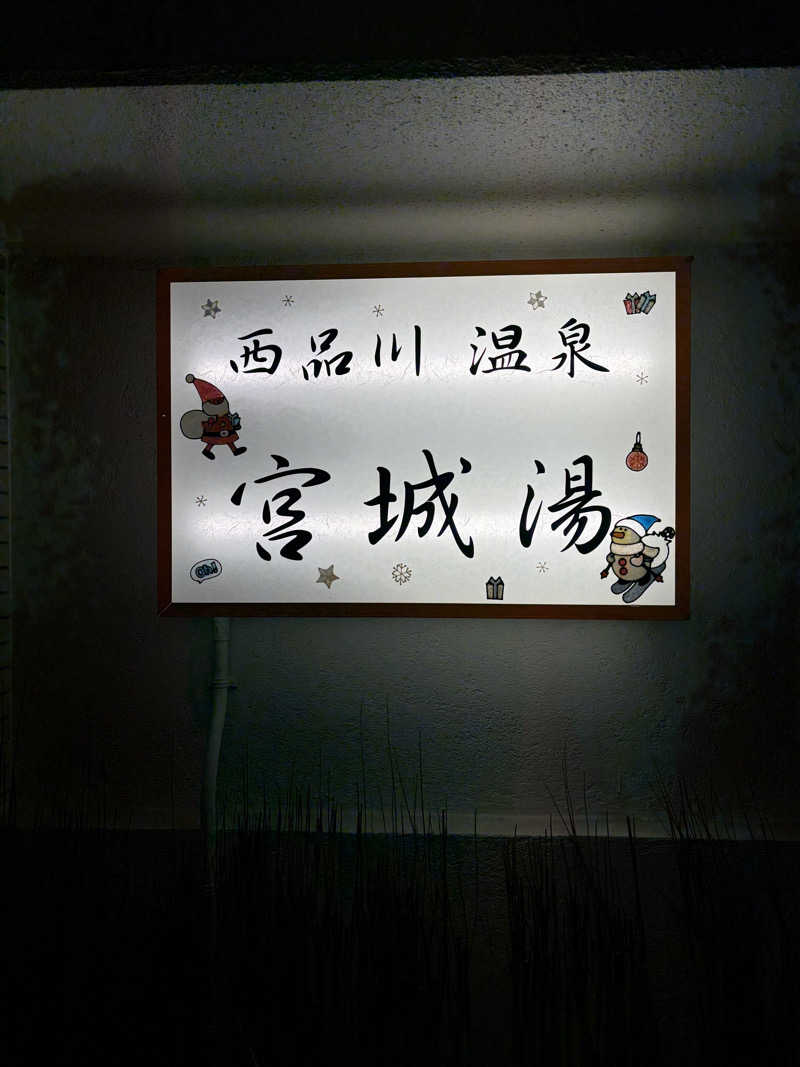 西品川 温泉
宮城湯
Oh!